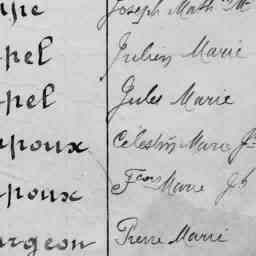 Joseph Math
pel Julien Marie
pel Jules Marie
poux Célestin Marie Jh
poux Fcois Marie Jh
urgeon Pierre Marie